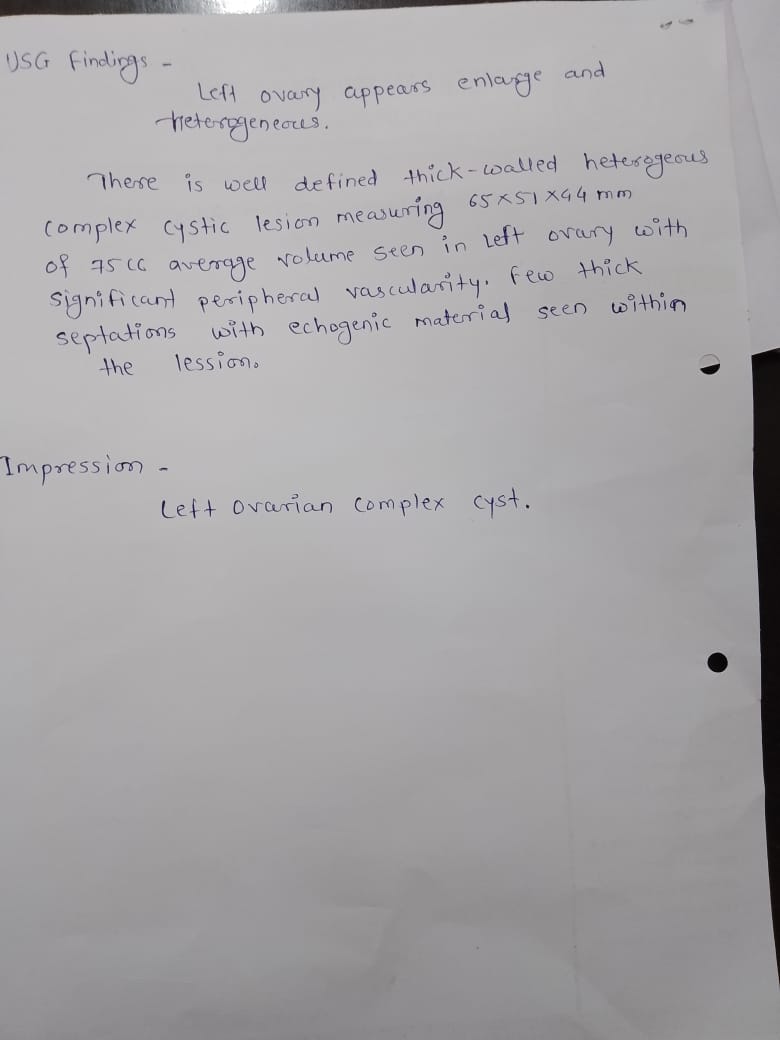 USG Findings -
Left ovary appears enlarge and
heterogeneous.
There is well defined thick-walled heterogeous
complex cystic lesion measuring 65x51x44 mm
of 75 cc average volume seen in left ovary with
significant peripheral vascularity. Few thick
septations with echogenic material seen within
the lession.
Impression -
Left ovarian complex cyst.